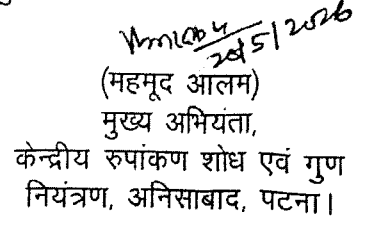 20/5/2026
(महमूद आलम)
मुख्य अभियंता,
केन्द्रीय रुपांकण शोध एवं गुण
नियंत्रण, अनिसाबाद, पटना।